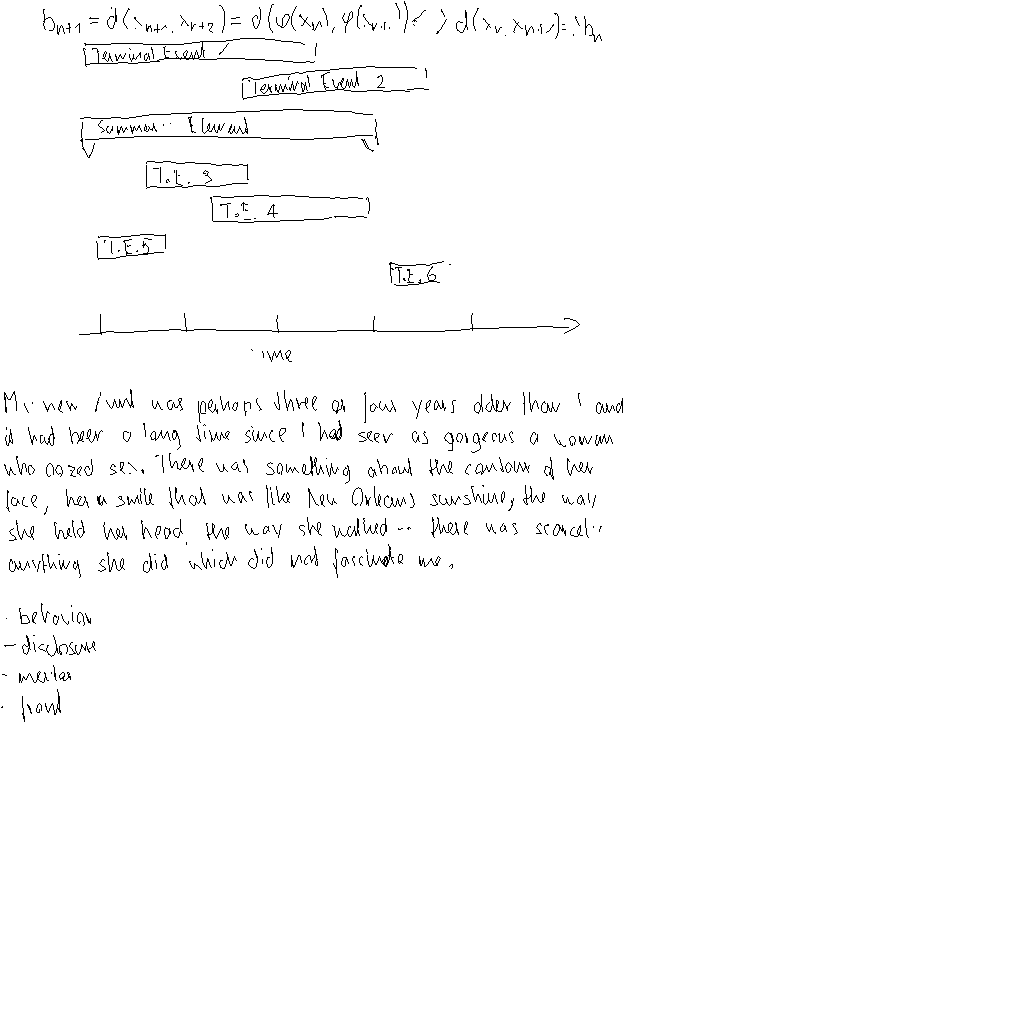 b_{n+1} = d(x_{n+1}, x_{n+2}) = d(φ(x_n), φ(x_{n+1})) d(x_n, x_{n+1}) = b_n
Terminal Event
Terminal Event 2
Element
T.E. 3
T.E. 4
T.E. 5
T.E. 6
Time
new was perhaps three or four years older than I and
it had been a long time since I had seen as gorgeous a woman
who oozed sex. There was something about the contour of her
face, her smile that was like New Orleans sunshine, the way
she held her head, the way she walked -- there was
anything she did which did not fascinate me.
- behavior
- disclosure
-
- front